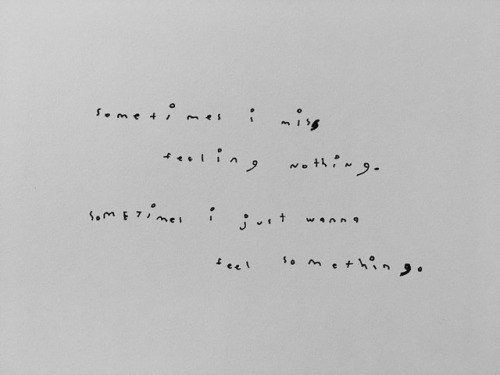 sometimes i miss
feeling nothing.
sometimes i just wanna
feel something.